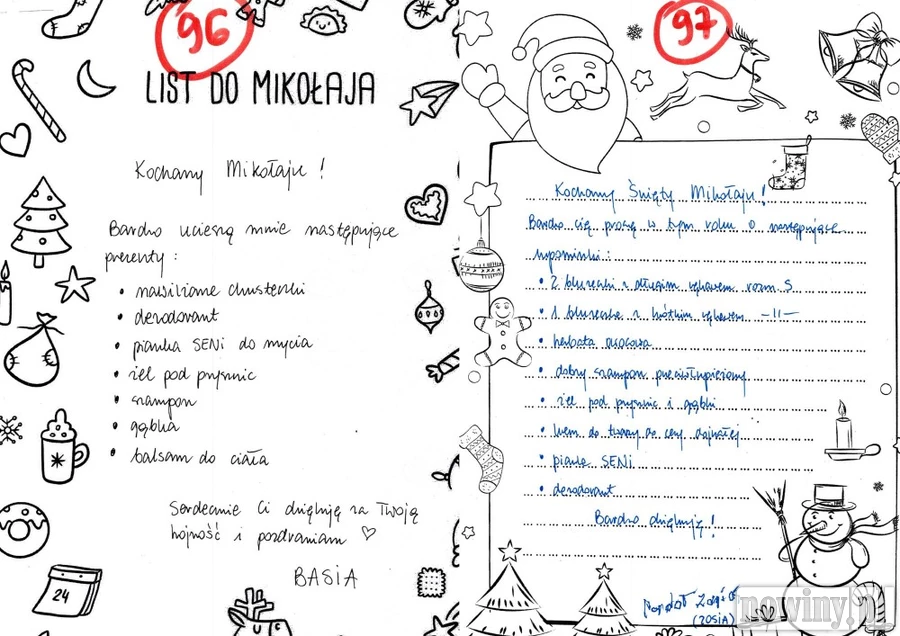 96
LIST DO MIKOŁAJA
Kochany Mikołaju !
Bardzo ucieszą mnie następujące
prezenty :
• nawilżone chusteczki
• dezodorant
• pianka SENi do mycia
• żel pod prysznic
• szampon
• gąbka
• balsam do ciała
Serdecznie Ci dziękuję za Twoją
hojność i pozdrawiam ♡
BASIA
24
97
Kochany Święty Mikołaju !
Bardzo cię proszę w tym roku o następujące
upominki :
• 2 bluzeczki z długim rękawem rozm. S
• 1 bluzeczka z krótkim rękawem -II-
• herbata owocowa
• dobry szampon przeciwłupieżowy
• żel pod prysznic i gąbki
• krem do twarzy do cery dojrzałej
• pianka SENi
• dezodorant
Bardzo dziękuję !
(ZOSIA)
nowiny.pl